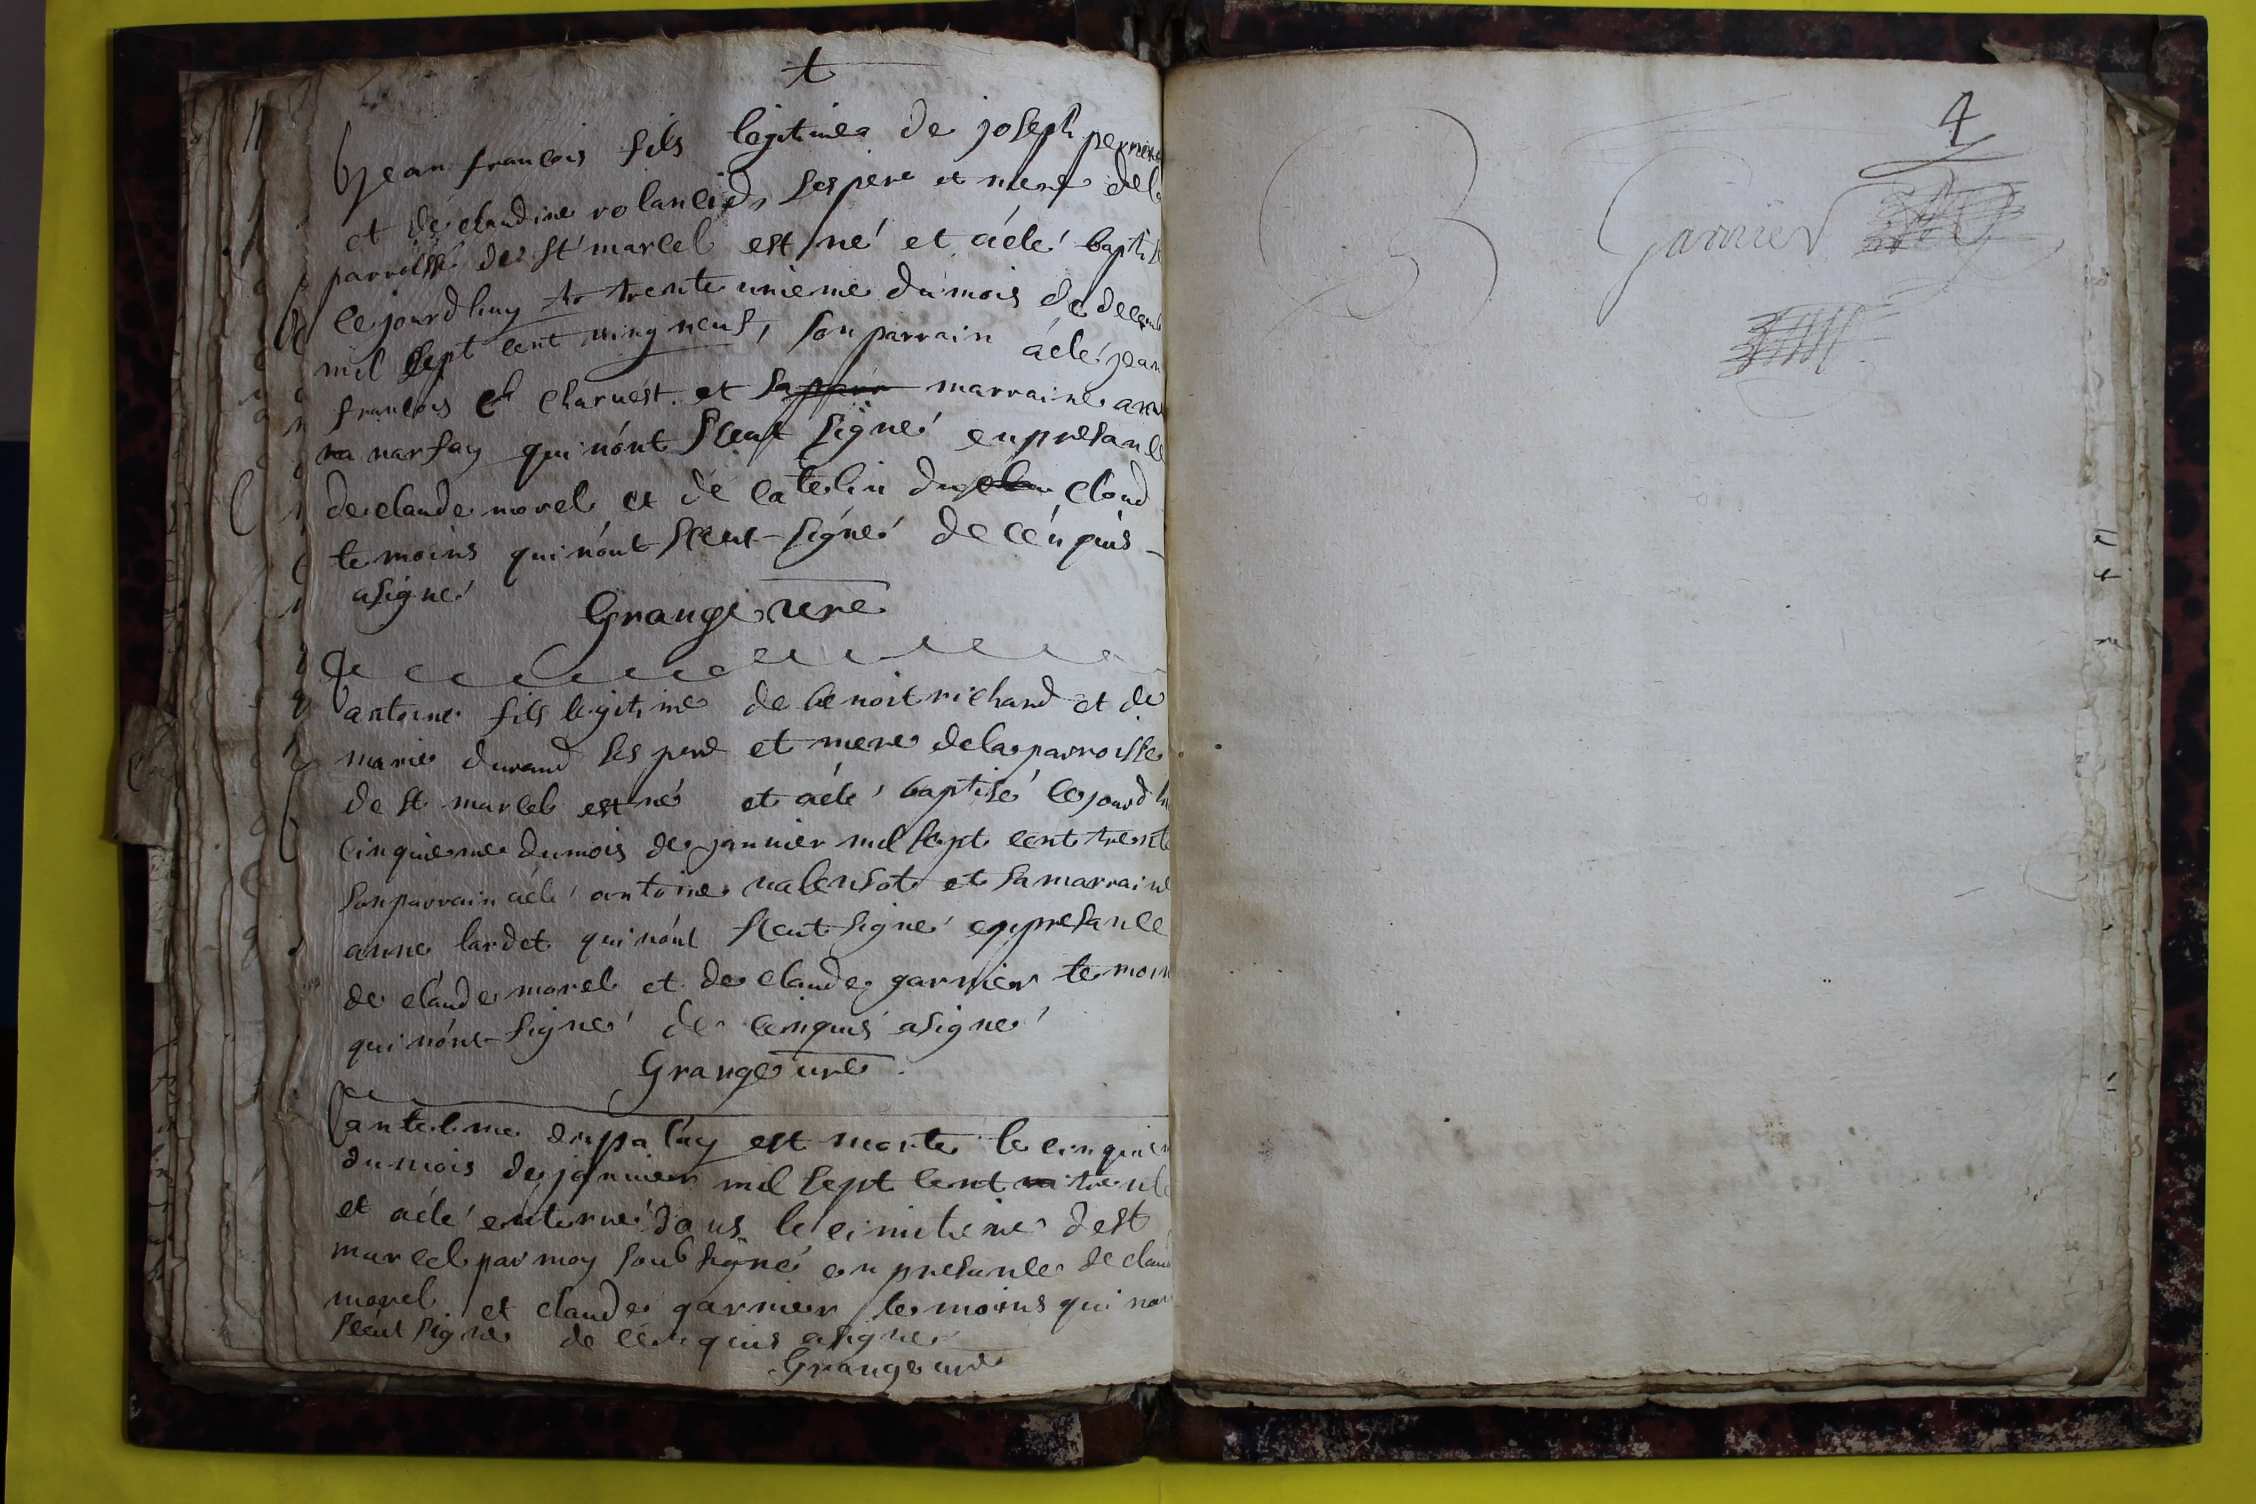 jean francois fils legitime de joseph
et de claudine ses pere et mere de la
parroisse de st marcel est né et a éte baptisé
ce jourdhuy trente unieme du mois de
mil sept cent ving neuf, son parrain a éte jean
francois charuest et sa marraine
narfay qui nont sceut signé en presance
de claude morel et de catelin du cloud
temoins qui nónt sceut signé de cé n quis
asigné
Grange curé
antoine fils legitime de benoit richard et de
marie durand ses pere et mere de la parroisse
de st marcel est né et a éte baptisé ce jourd
cinquieme du mois de janvier mil sept cent trente
son parrain a éte antoine et sa marraine
anne lardet qui nónt sceut signé en presance
de claude morel et de claude garnier temoin
qui nónt signé de cenquis asigné
Grange curé
antelme dupaluy est morte le cinquiem
du mois de janvier mil sept cent trente
et a éte enterré dans le cimitiere de st
marcel par moy soubsigné en presance de
morel et claude garnier temoins qui
sceut signe de cé n quis asigne
Grange curé
4
Garnier